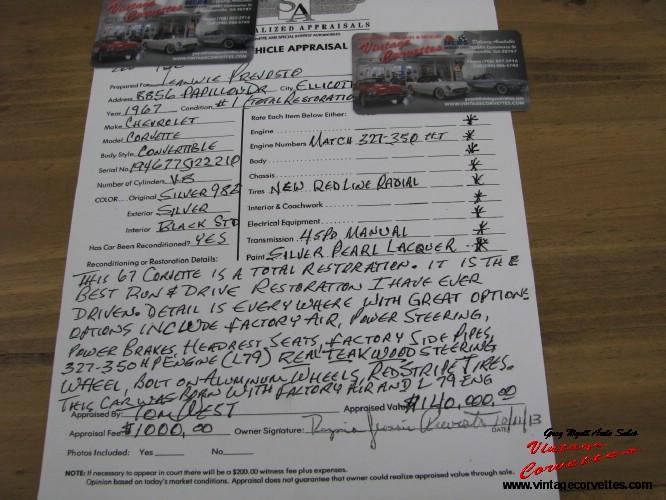 SA
ALIZED APPRAISALS
HICLE APPRAISAL
Vintage Corvettes
Prepared For JEANNIE PREVOSTO
Address 8856 PAPILLON DR City ELLICOTT
Year 1967 Condition #1 TOTAL RESTORATIO
Make CHEVROLET
Model CORVETTE
Body Style CONVERTIBLE
Serial No 194677S122210
Number of Cylinders V-8
COLOR.... Original SILVER 982
Exterior SILVER
Interior BLACK STD
Has Car Been Reconditioned? YES
Rate Each Item Below Either:
Engine *
Engine Numbers MATCH 327-350 H.T *
Body *
Chassis *
Tires NEW REDLINE RADIAL *
Interior & Coachwork *
Electrical Equipment *
Transmission 4 SPD MANUAL *
Paint SILVER PEARL LACQUER *
Reconditioning or Restoration Details:
THIS 67 CORVETTE IS A TOTAL RESTORATION. IT IS THE
BEST RUN & DRIVE RESTORATION I HAVE EVER
DRIVEN. DETAIL IS EVERYWHERE WITH GREAT OPTIONS
OPTIONS INCLUDE FACTORY AIR, POWER STEERING,
POWER BRAKES, HEADREST SEATS, FACTORY SIDE PIPES,
327-350 HP ENGINE (L79) REAL TEAKWOOD STEERING
WHEEL, BOLT ON ALUMINUM WHEELS, RED STRIPE TIRES.
THIS CAR WAS BORN WITH FACTORY AIR AND L79 ENG
Appraised By: TOM WEST Appraised Value $140,000.00
Appraisal Fee $1000.00 Owner Signature: DATE
Photos Included: Yes No
NOTE: If necessary to appear in court there will be a $200.00 witness fee plus expenses.
Opinion based on today's market conditions. Appraisal does not guarantee that owner could realize appraised value through sale.
Greg Wyatt Auto Sales
Vintage
Corvettes
www.vintagecorvettes.com